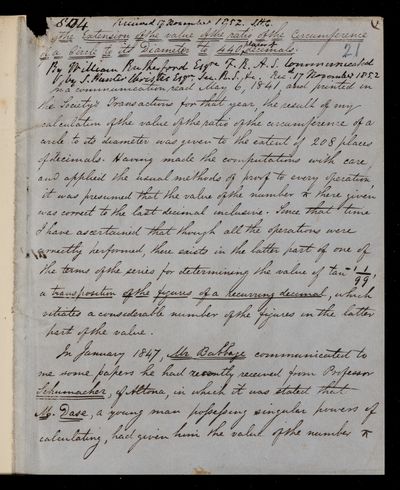 Received 17 November 1852. SHC.
Of the Extension of the value of the ratio of the Circumference
of a Circle to its Diameter to 440 places of decimals.
21
By William Rutherford Esqre F.R.A.S. Communicated
by S. Hunter Christie Esqre, Sec. R.S., &c. Rec. 17 November 1852
In a communication read May 6, 1841, and printed in
the Society's Transactions for that year the result of my
calculation of the value of the ratio of the circumference of a
circle to its diameter was given to the extent of 208 places
of decimals. Having made the computations with care,
and applied the usual methods of proof to every operation
it was presumed that the value of the number π there given
was correct to the last decimal inclusive. Since that time
I have ascertained that though all the operations were
correctly performed, there exists in the latter part of one of
the terms of the series for determining the value of tan⁻¹ 1/99,
a transposition of the figures of a recurring decimal, which
vitiates a considerable number of the figures in the latter
part of the value.
In January 1847, Mr Babbage communicated to
me some papers he had recently received from Professor
Schumacher, of Altona, in which it was stated that
Mr. Dase, a young man possessing singular powers of
calculating, had given him the value of the number π